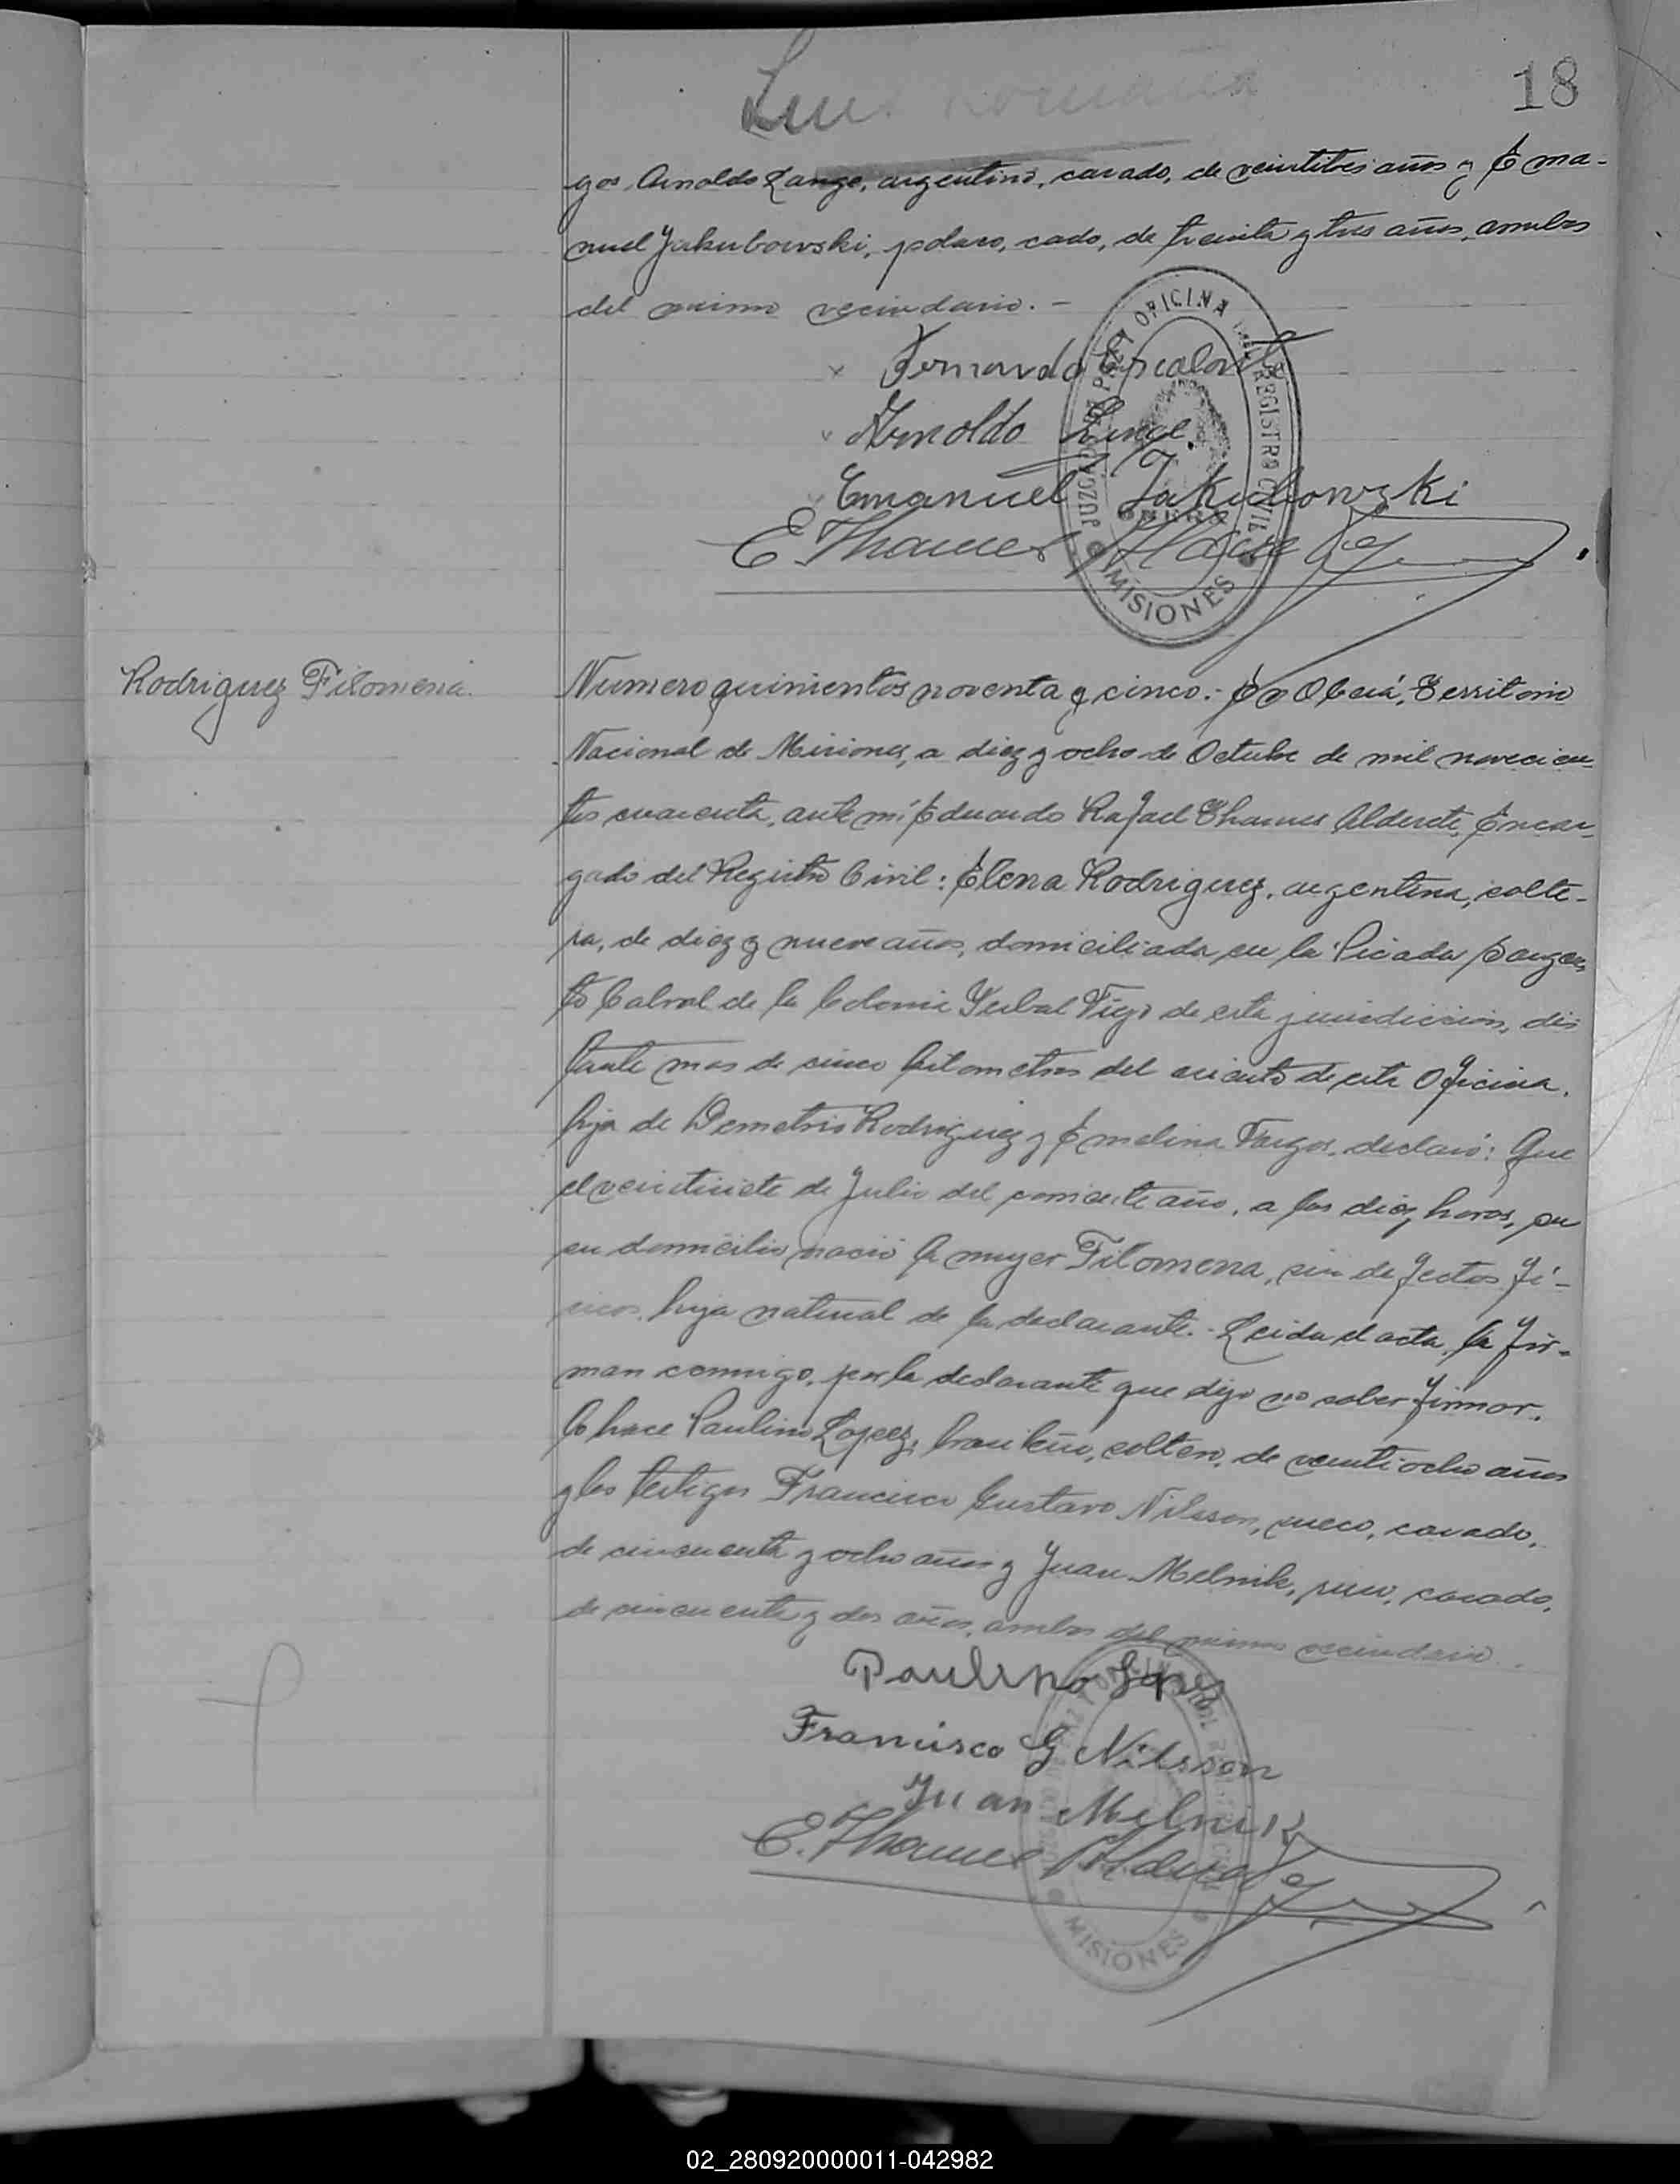 18
Luis
gos, Arnoldo Lange, argentino, casado, de veintitres años y Ema-
nuel Jakubowski, polaco, cado, de treinta y tres años, ambos
del mismo vecindario. -
x Fernando Escalante
x Arnoldo Lange.
x Emanuel Jakubowski
E. Thames Alderete
JUZGADO DE PAZ Y OFICINA DEL REGISTRO CIVIL
OBERA
MISIONES
Rodriguez Filomena.
Numero quinientos noventa y cinco.- En Oberá, Territorio
Nacional de Misiones, a diez y ocho de Octubre de mil novecien-
tos cuarenta, ante mí Eduardo Rafael Thames Alderete, Encar-
gado del Registro Civil: Elena Rodriguez, argentina, solte-
ra, de diez y nueve años, domiciliada en la Picada Sargen-
to Cabral de la Colonia Yerbal Viejo de esta jurisdiccion, dis
tante mas de cinco kilometros del asiento de esta Oficina.
hija de Demetrio Rodriguez y Emelina Fargos, declaró: Que
el veintisiete de Julio del corriente año, a las diez horas, en
su domicilio nació la mujer Filomena, sin defectos fí-
sicos, hija natural de la declarante.- Leida el acta, la fir-
man conmigo, por la declarante que dijo no saber firmar.
lo hace Paulino Lopez, brasileño, soltero, de veintiocho años
y los testigos Francisco Gustavo Nilsson, sueco, casado,
de cincuenta y ocho años y Juan Melnik, ruso, casado,
de cincuenta y dos años, ambos del mismo vecindario.
Paulino Lopez
Francisco G Nilsson
Juan Melnik
E. Thames Alderete
MISIONES
02_280920000011-042982